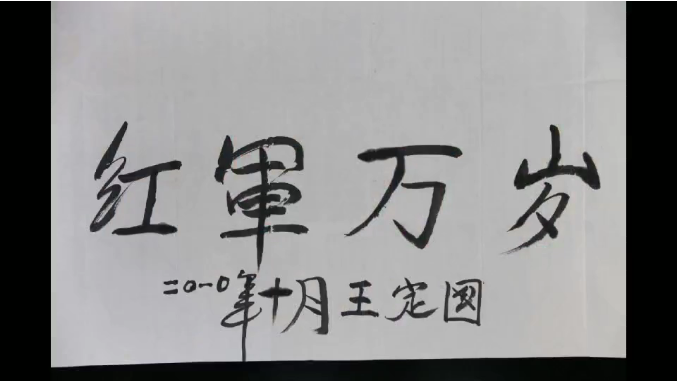 红軍万岁
二〇一〇年十月王定国